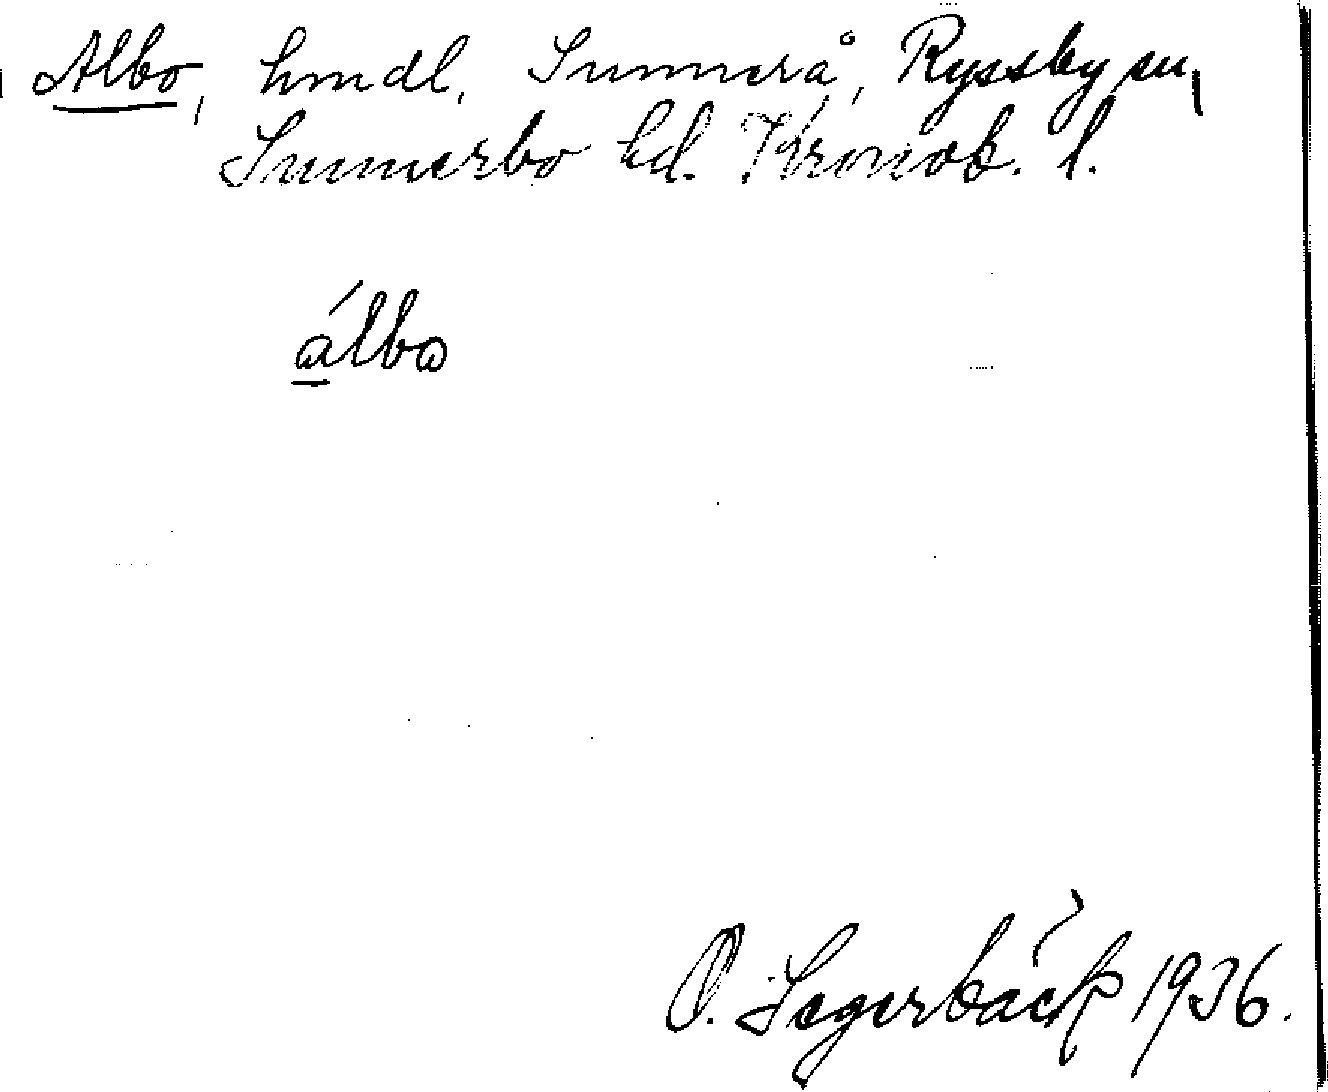 Albo, hmdl. Sunnerå, Ryssby sn,
Sunnerbo hd. Kronob. l.
álbo
O. Segerbäck 1936.